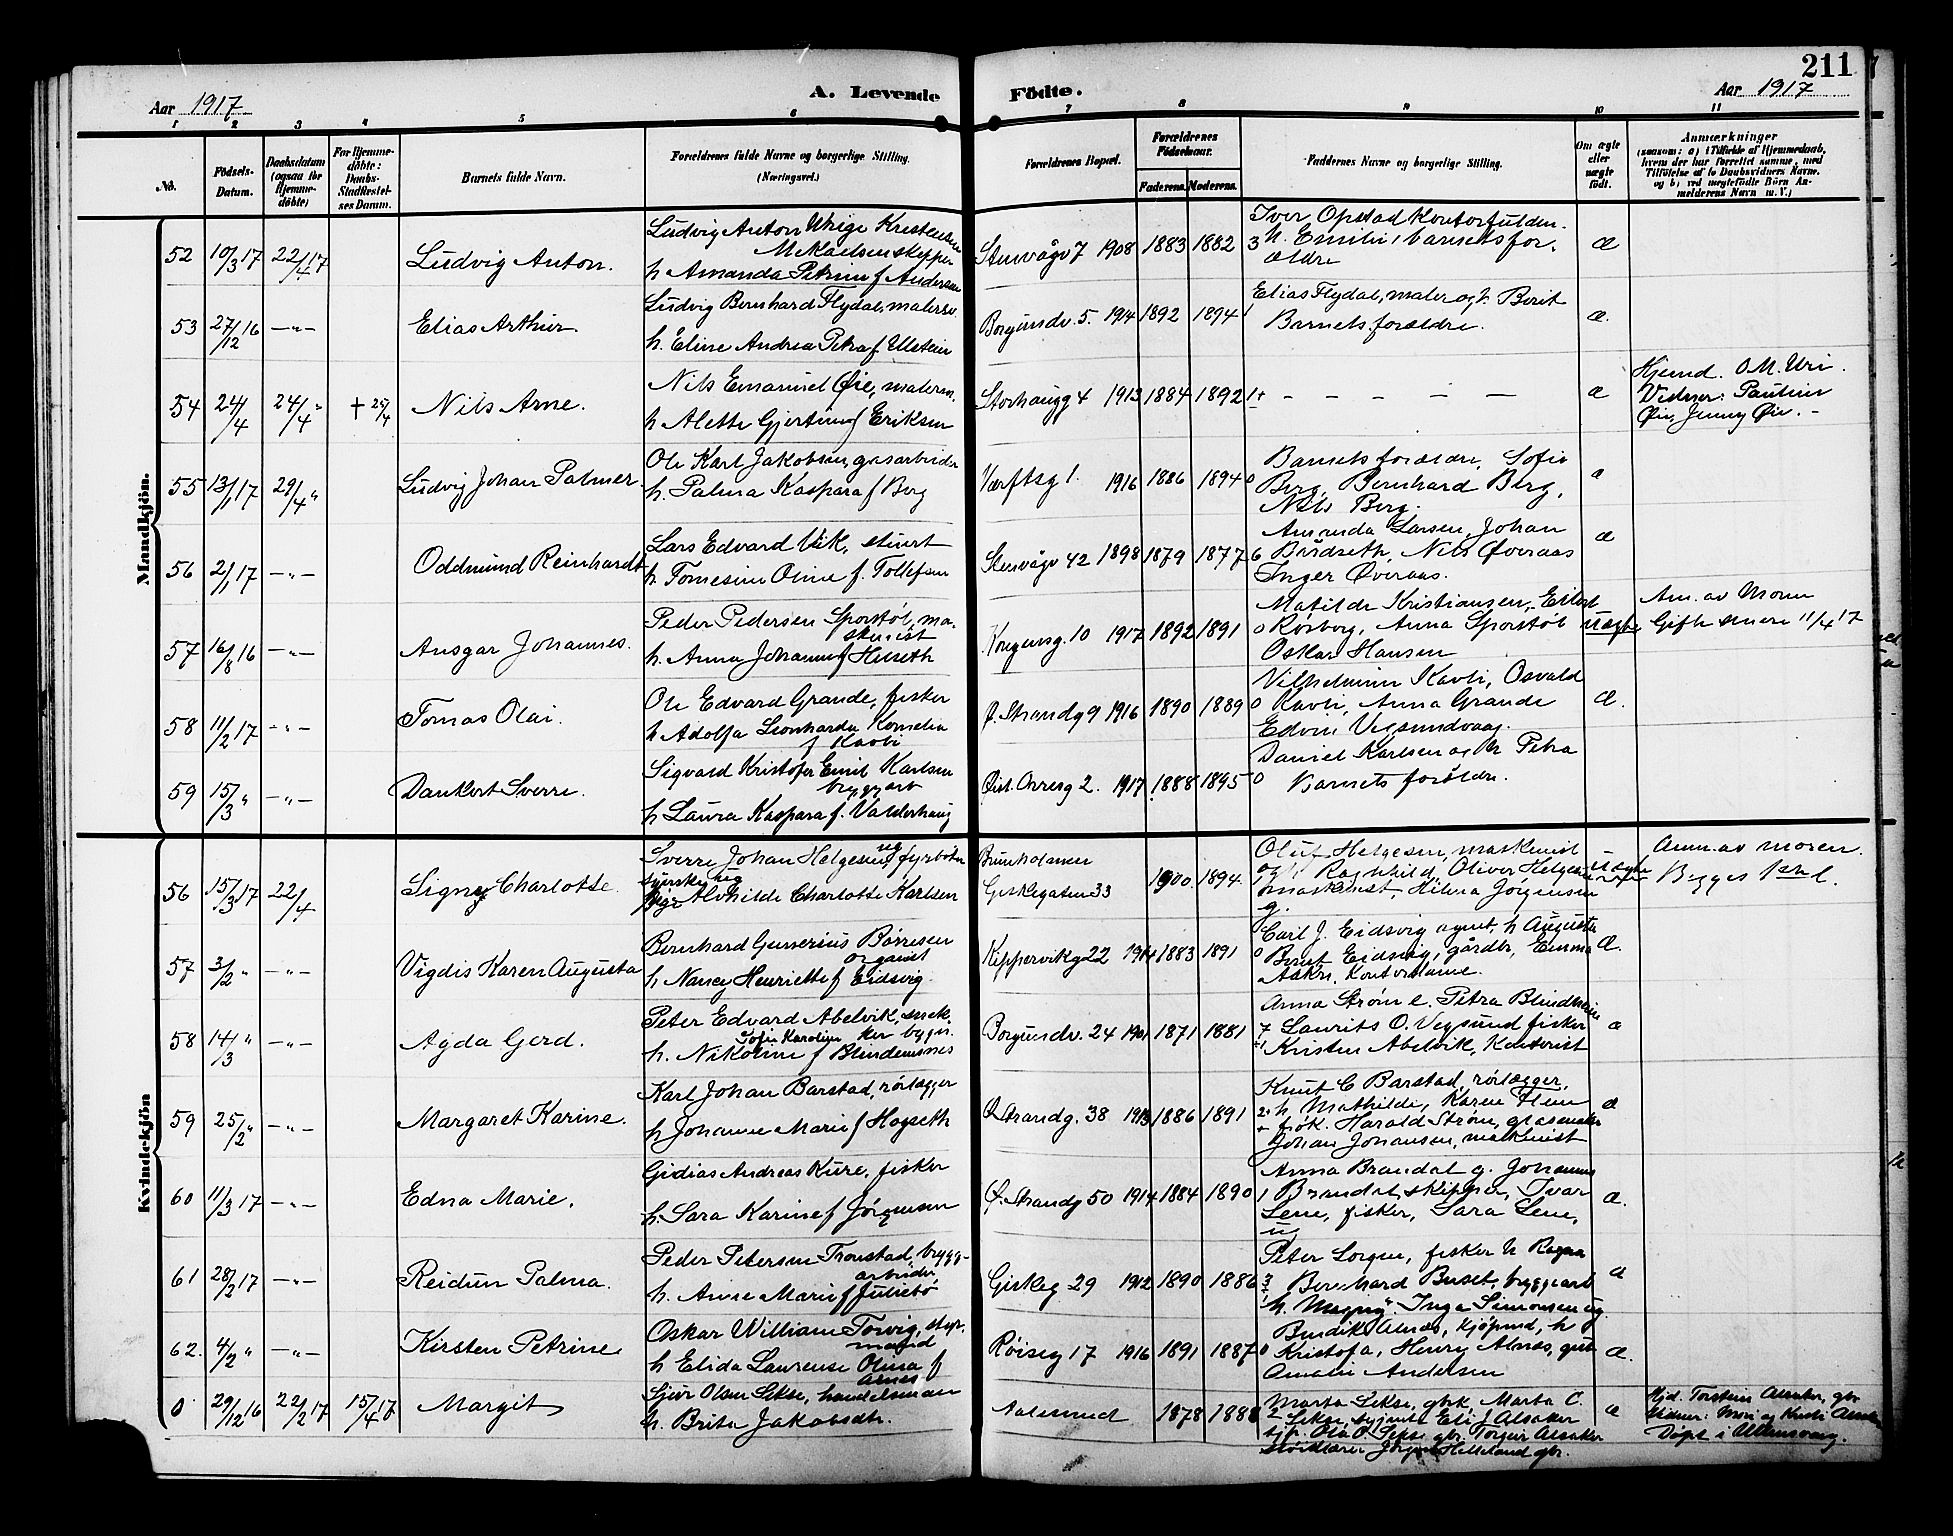 211
Aar 1917
A. Levende
Födte.
Aar 1917
1 2 3 4 5 6 7 8 9 10 11
No.
Födsels-
Datum.
Daabsdatum
(ogsaa for
Hjemme-
döbte)
For Hjemme-
döbte:
Daabs-
Stadfæstel-
ses Datum.
Barnets fulde Navn.
Forældrenes fulde Navne og borgerlige Stilling.
(Næringsvei.)
Forældrenes Bopæl.
Forældrenes
Födselsaar.
Faderens. Moderens.
Faddernes Navne og borgerlige Stilling.
Om ægte
eller
uægte
födt.
Anmærkninger
(saasom: a) i Tilfælde af Hjemmedaab,
hvem der har forrettet samme, med
Tilföielse af to Daabsvidners Navne.
og b) ved uægtefödte Börn An-
melderens Navn m. V.)
Mandkjön.
52 10/3 17 22/4 17 Ludvig Anton.
Ludvig Anton
Mekaelsen skipper
h Amanda Petrine f Andersen
Stenvågv 7 1908 1883 1882 3
Iver Opstad Kontorfuldm.
h. Emilie, Barnets for.
ældre
æ
53 27/12 16 -"- Elias Arthur.
Ludvig Bernhard Flydal, malersv.
h. Eline Andrea Petra f Ulstein
Borgundv. 5. 1914 1892 1894 1
Elias Flydal, maler og h. Berit
Barnets forældre.
æ.
54 24/4 24/4 " + 25/4 Nils Arne.
Nils Emanuel Øie, malerm.
h Alette Gjertine f Eriksen
Storhaugg 4 1913 1884 1892 1+
- - - - -
æ
Hjemd. O.M. Uri.
Vidner: Pauline
Øie, Jenny Øie. -
55 13/1 17 29/4 " Ludvig Johan Palmer.
Ole Karl Jakobsen, gasarbeider
h. Palma Kaspara f Berg
Værftsg 1. 1916 1886 1894 0
Barnets forældre, Sofie
Berg, Bernhard Berg,
Nils Berg.
æ
56 2/1 17 -"- Oddmund Reinhardt
Lars Edvard Vik, stuert
h. Tomesine Oline f. Tollefsen
Stenvågv 42 1898 1879 1877 6
Amanda Larsen, Johan
Burdseth, Nils Øveraas
Inger Øveraas.
æ
57 16/8 16 -"- Ansgar Johannes.
Peder Pedersen Sporstøl, ma-
skinist
h. Anna Johanne f Helseth
Kongensg. 10 1917 1892 1891 0
Matilde Kristiansen, Eilert
Røsberg, Anna Sporstøl
Oskar Hansen
uægte
Am. av Moren
Gifte senere 11/4 17
58 11/2 17 -"- Tomas Olai.
Ole Edvard Grande, fisker
h Adolfa Leonharda Kornelia
f Kavli
Ø. Strandg 9 1916 1890 1889 0
Vilhelmine Kavli, Osvald
Kavli, Anna Grande
Edvin Vegsundvaag.
Æ.
59 15/3 " -"- Dankert Sverre.
Sigvald Kristofer Emil Karlsen
bryggearb
h Laura Kaspara f. Valderhaug
Øvt. Torvg 2. 1917 1888 1895 0
Daniel Karlsen og h Petra
Barnets foröldre.
Kvindekjön
56 15/3 17 22/4 Signy Charlotte.
Sverre Johan Helgesen, ug fyrböter
ug
pige Alvhilde Charlotte Karlsen
Brunholmen
Giskegaten 33
1900. 1894.
Oluf Helgesen, maskinist
og Ragnhild, Oliver Helgesen
maskinist, Helena Jörgensen
g.
uægte
Anm. av moren.
Begges 1ste l.
57 3/2 " -"- Vigdis Karen Augusta
Bernhard Gunerius Börresen
organist
h, Nancy Henriette f Eidsvig.
Kippervikg 22 1914 1883 1891 0
Carl J. Eidsvig agent, h Augusta
Bernt Eidsvig, gårdbr, Emma
Aakre, Kontordame.
Æ.
58 14/3 " -"- Agda Gerd.
Peter Edvard Abelvik, snek-
ker bygn.
Sofie Karoline
h. Nikoline f Blindemsnes
Borgundv. 24 1901 1871 1881 7
Anna Strøm e. Petra Blindheim
Laurits O. Vegsund fisker
Kristen Abelvik, Kontorist
æ
59 25/2 " -"- Margaret Karine.
Karl Johan Barstad, rörlægger
h Johanne Marie f Hogseth
Ø Strandg. 38 1913 1886 1891 2
Knut C Barstad, rörlægger,
h, Mathilde, Karen Flem
frök. Harald Strøm,
Johan Johansen, maskinist
æ
60 11/3 17 -"- Edna Marie.
Gidias Andreas Kure, fisker
h. Sara Karine f Jörgensen
Ø. Strandg 50 1914 1884 1890 1
Anna Brandal g. Johannes
Brandal, skipper, Ivar
Lene, fisker, Sara Lene,
u
æ.
61 28/2 17 -"- Reidun Palma.
Peder Petersen Tronstad, brygg-
arbeider,
h. Anne Marie f Julebø
Giskeg 29 1912 1890 1886 3
Peter Sorgen, fisker h Ragna
Bernhard Buset, bryggearb
h. Magny. Inga Simonsen ug
æ
62. 4/2 " -"- Kirsten Petrine
Oskar William Torvig, styr.
mand
h Elida Laurense Olina f
Arnes
Röiseg 17 1916 1891 1887 0
Bendik Alnæs, kjöpmd, h
Kristofa, Henry Alnæs, gut
Amalie Andersen
æ.
0 29/12 16 22/2 17 15/4 17 Margit
Sjur Olsen Sekse, handelsman
h. Brita Jakobsdtr.
Aalesund 1878 1888
Marta Sekse, gbrk. Marta C.
Sekse, syjente Eli J Alsaker
Ola O. Sekse gbr. Torgeir Alsaker
Jörgen Helleland gbr.
æ
Hjd. Torstein Alsaker, gbr.
Vidner: Mor og Kristi Alsaker
Döpt i Ullensvang.